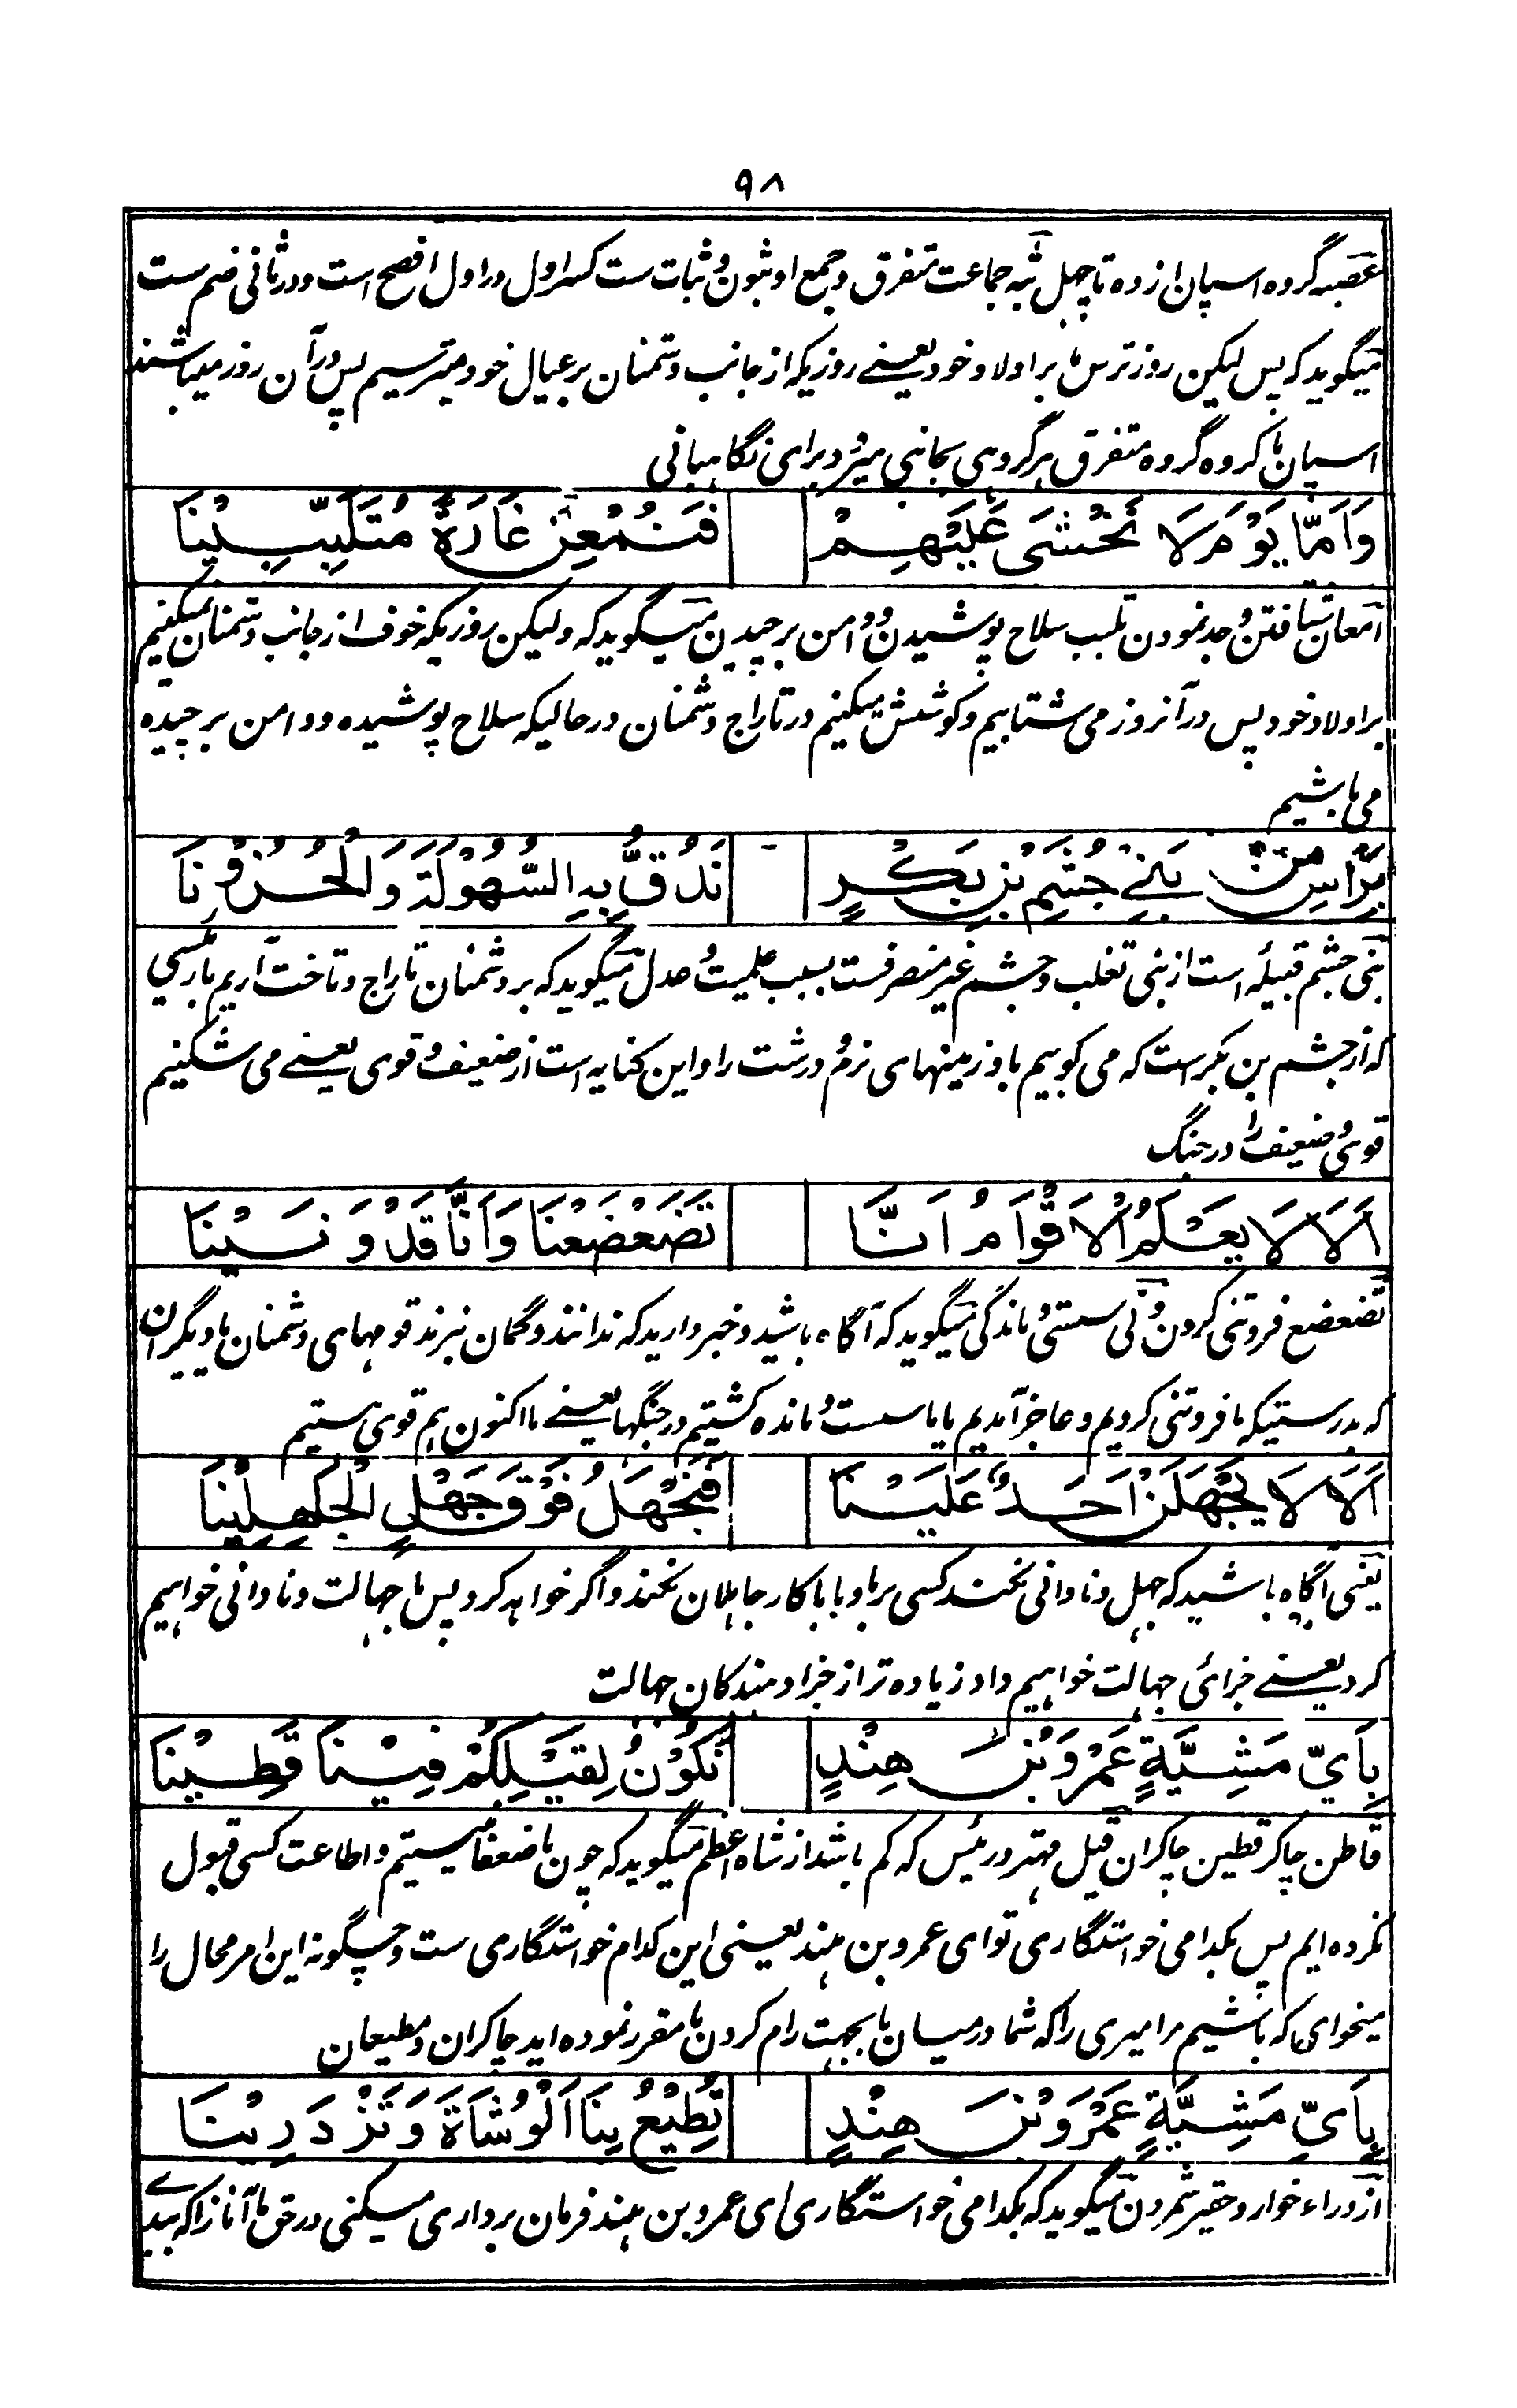 ۹۸
عصبه گروه اسپان از ده تا چهل ثبه جماعت متفرق و جمع او ثبون و ثبات ست کسر اول در اول افصح است و در ثانی ضم ست
میگوید که پس لیکن روز ترس ما بر اولاد خود یعنے روزیکه از جانب دشمنان بر عیال خود میترسیم پس در آن روز میباشند
اسپان ما گروه گروه متفرق هر گروهی بجانبی میرود برای نگاهبانی
وَاَمَّا يَوْمَ لَا نَخْشَى عَلَيْهِمْ
فَنُمْعِنُ غَارَةً مُتَلَبِّبِيْنَا
امعان شتافتن و جد نمودن تلبب سلاح پوشیدن و دامن برچیدن میگوید که ولیکن روزیکه خوف از جانب دشمنان نمیکنیم
بر اولاد خود پس در آنروز می شتابیم و کوشش میکنیم در تاراج دشمنان در حالیکه سلاح پوشیده و دامن برچیده
می باشیم
بِرَأْسٍ مِنْ بَنِيْ جُشَمِ بْنِ بَكْرٍ
نَدُقُّ بِهِ السُّهُوْلَةَ وَالْحُزُوْنَا
بنی جشم قبیلهٔ است از بنی تغلب و جشم غیر منصرفست بسبب علمیت و عدل میگوید که بر دشمنان تاراج و تاخت آریم با رئیسی
که از جشم بن بکر است که می کوبیم باو زمینهای نرم و درشت را و این کنایه است از ضعیف و قوی یعنے می شکنیم
قوی و ضعیف را در جنگ
اَلَا لَا يَعْلَمُ الْاَقْوَامُ اَنَّا
تَضَعْضَعْنَا وَاَنَّا قَدْ وَنَيْنَا
تضعضع فروتنی کردن ونی سستی و ماندگی میگوید که آگاه باشید و خبردارید که ندانند و گمان نبرند قومهای دشمنان یا دیگران
که بدرستیکه ما فروتنی کردیم و عاجز آمدیم یا ما سست و مانده گشتیم در جنگها یعنے ما اکنون هم قوی هستیم
اَلَا لَا يَجْهَلَنْ اَحَدٌ عَلَيْنَا
فَنَجْهَلُ فَوْقَ جَهْلِ الْجَاهِلِيْنَا
یعنی آگاه باشید که جهل و نادانی نکند کسی بر ما و با ما کار جاهلان نکند و اگر خواهد کرد پس ما جهالت و نادانی خواهیم
کرد یعنے جزائی جهالت خواهیم داد زیاده تر از جزا دهندگان جهالت
بِاَيِّ مَشِيَّةٍ عَمْرَوبْنَ هِنْدٍ
نَكُوْنُ لِقَيْلِكُمْ فِيْنَا قَطِيْنَا
قاطن چاکر قطین چاکران قیل مهتر و رئیس که کم باشد از شاه اعظم میگوید که چون ما ضعفا نیستیم و اطاعت کسی قبول
نکرده ایم پس بکدامی خواستگاری تو ای عمرو بن هند یعنی این کدام خواستگاری ست و چگونه این امر محال را
میخواهی که باشیم مر امیری را که شما درمیان ما بجهت رام کردن ما مقرر نموده اید چاکران و مطیعان
بِاَيِّ مَشِيَّةٍ عَمْرَوبْنَ هِنْدٍ
تُطِيْعُ بِنَا الْوُشَاةَ وَتَزْدَرِيْنَا
ازدراء خوار و حقیر شمردن میگوید که بکدامی خواستگاری ای عمرو بن هند فرمان برداری میکنی در حق ما آنانرا که ببدے